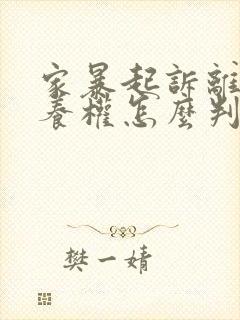 家暴起訴離
養權怎麼判
樊一婧